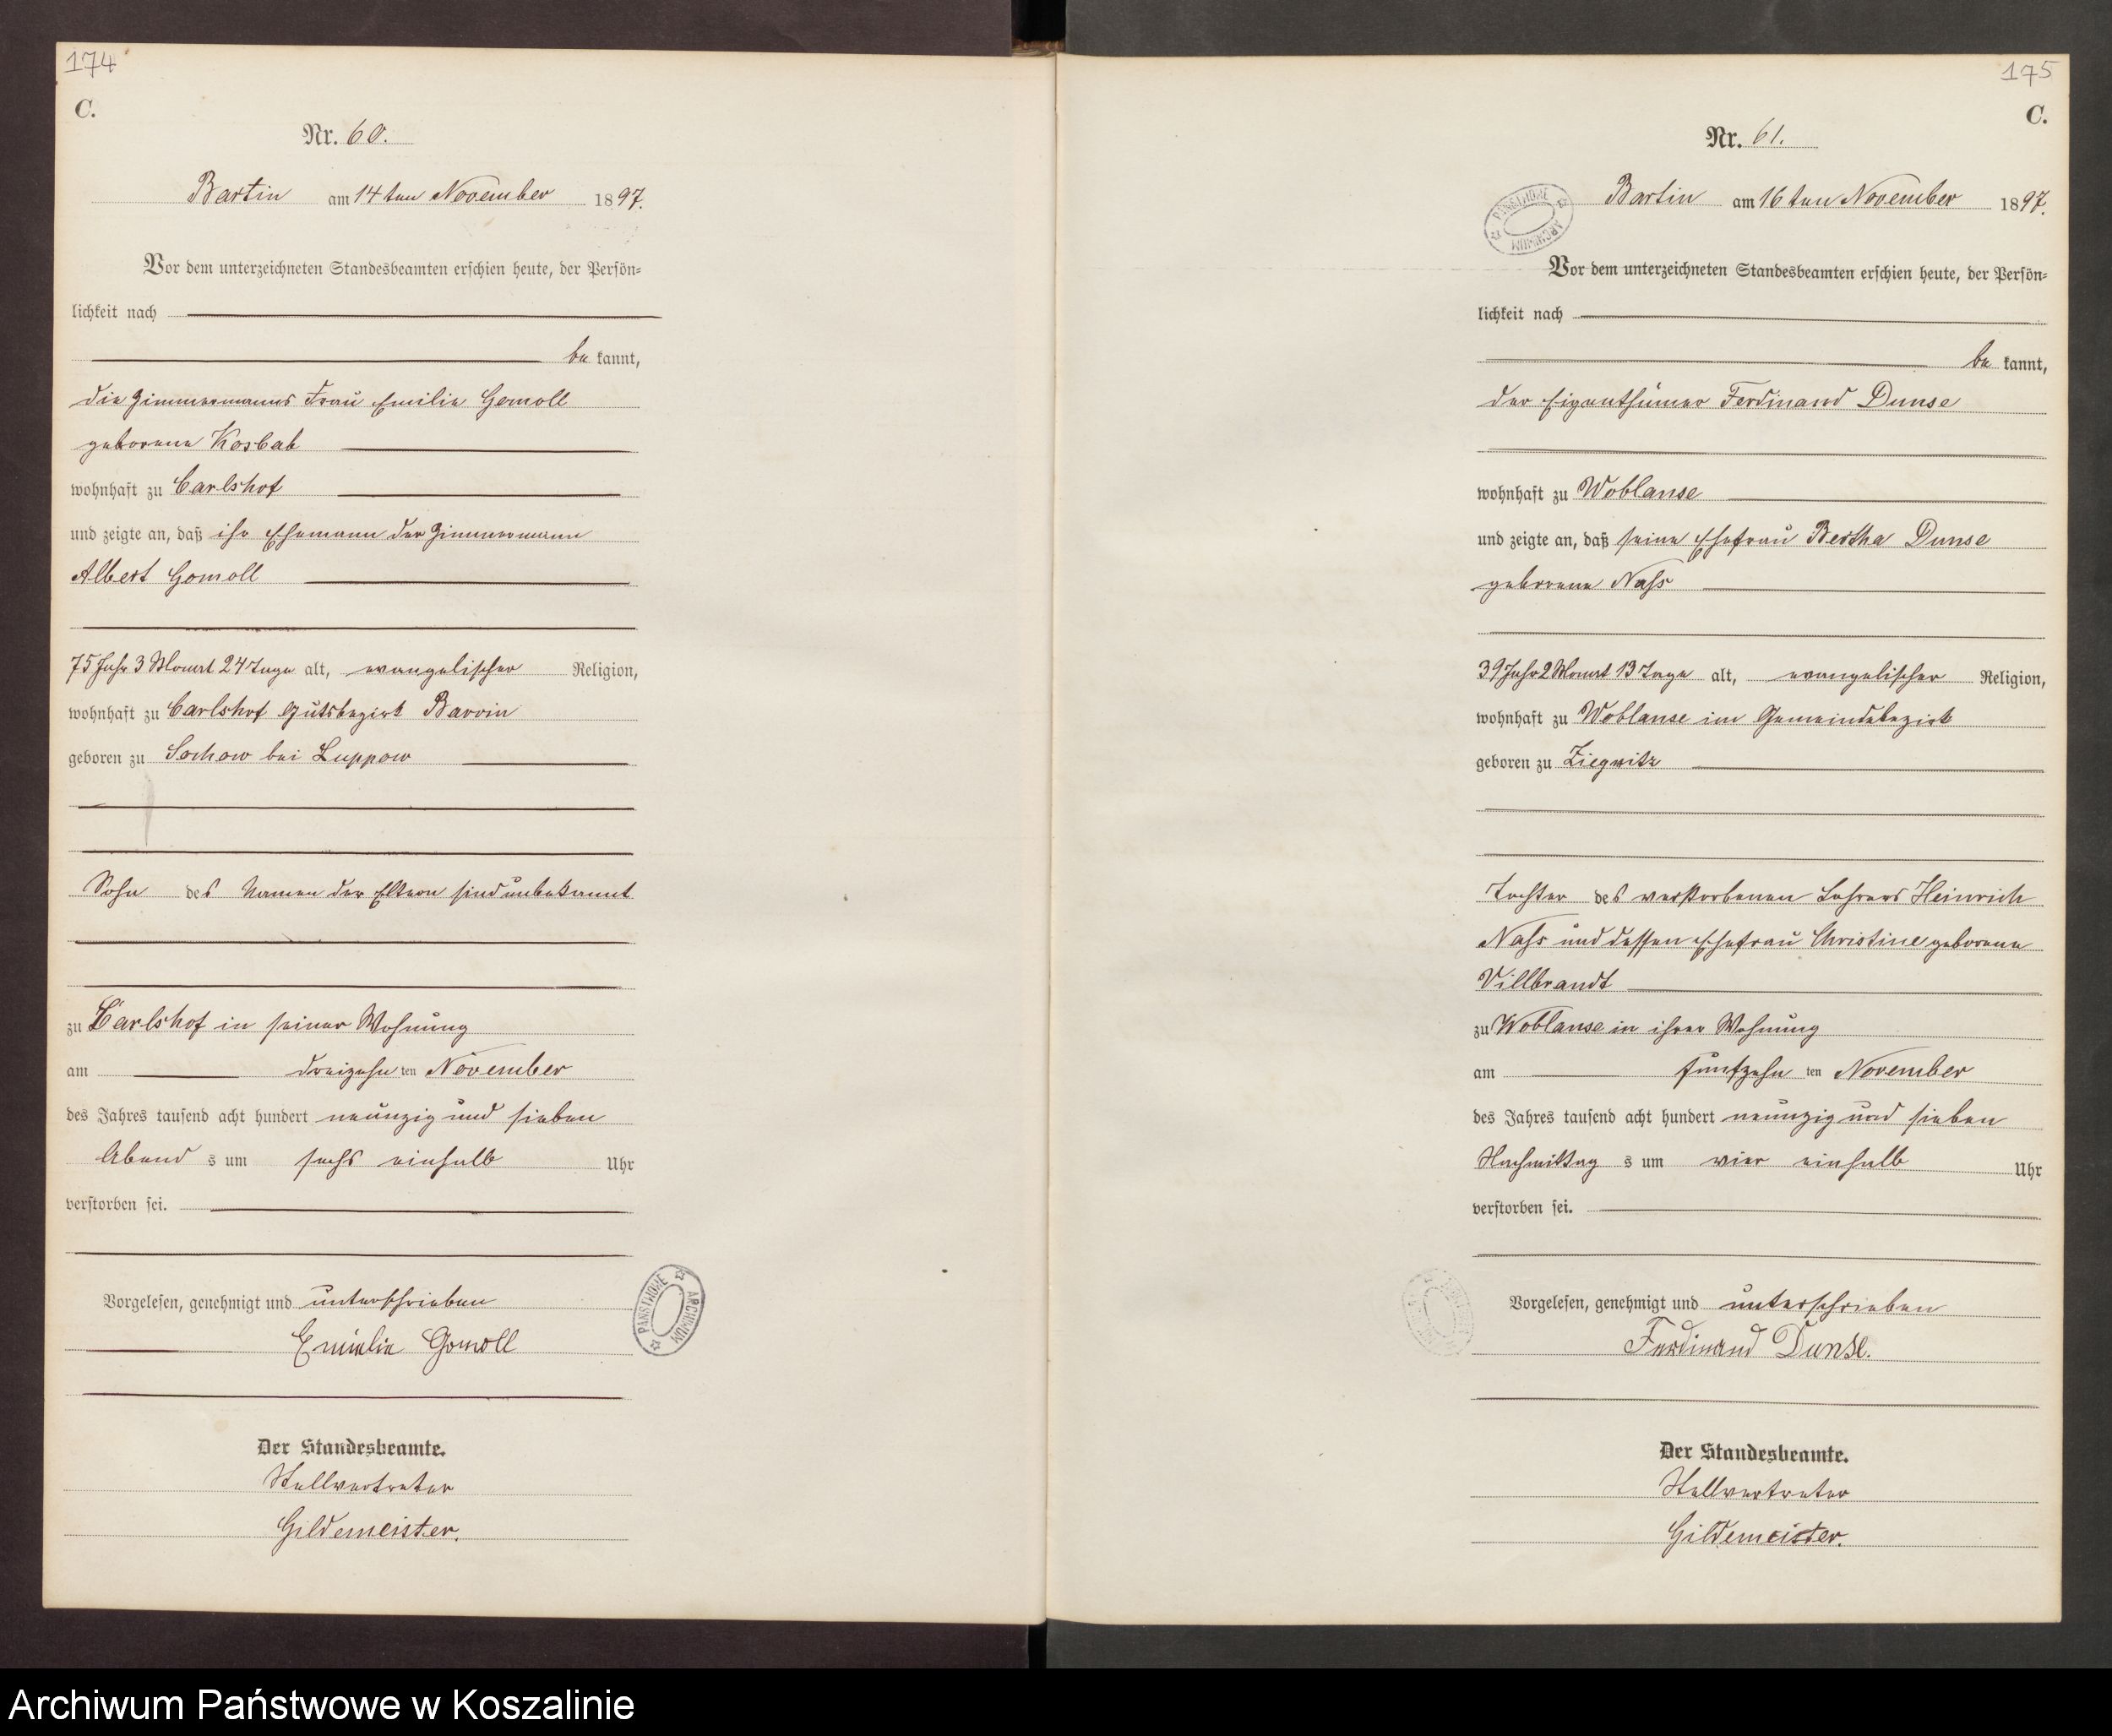 174
C.
Nr. 60.
Bartin am 14ten November 1897.
Vor dem unterzeichneten Standesbeamten erschien heute, der Persön-
lichkeit nach
be kannt,
die Zimmermanns Frau Emilie Gomoll
geborene Kosbab
wohnhaft zu Carlshof
und zeigte an, daß ihr Ehemann der Zimmermann
Albert Gomoll
75 Jahr 3 Monat 24 Tage alt, evangelischer Religion,
wohnhaft zu Carlshof Gutsbezirk Barvin
geboren zu Sochow bei Luppow
Sohn des Namen der Eltern sind unbekannt
zu Carlshof in seiner Wohnung
am dreizehn ten November
des Jahres tausend acht hundert neunzig und sieben
Abend s um sechs einhalb Uhr
verstorben sei.
Vorgelesen, genehmigt und unterschrieben
Emilie Gomoll
PAŃSTWOWE ARCHIWUM
Der Standesbeamte.
Stellvertreter
Gildemeister.
175
C.
Nr. 61.
PAŃSTWOWE ARCHIWUM
Bartin am 16ten November 1897.
Vor dem unterzeichneten Standesbeamten erschien heute, der Persön-
lichkeit nach
be kannt,
der Eigenthümer Ferdinand Dunse
wohnhaft zu Woblanse
und zeigte an, daß seine Ehefrau Bertha Dunse
geborene Nass
39 Jahr 2 Monat 13 Tage alt, evangelischer Religion,
wohnhaft zu Woblanse im Gemeindebezirk
geboren zu Ziegnitz
Tochter des verstorbenen Lehrers Heinrich
Nass und dessen Ehefrau Christine geborene
Villbrandt
zu Woblanse in ihrer Wohnung
am fünfzehn ten November
des Jahres tausend acht hundert neunzig und sieben
Nachmittag s um vier einhalb Uhr
verstorben sei.
Vorgelesen, genehmigt und unterschrieben
Ferdinand Dunse.
Der Standesbeamte.
Stellvertreter
Gildemeister.
Archiwum Państwowe w Koszalinie